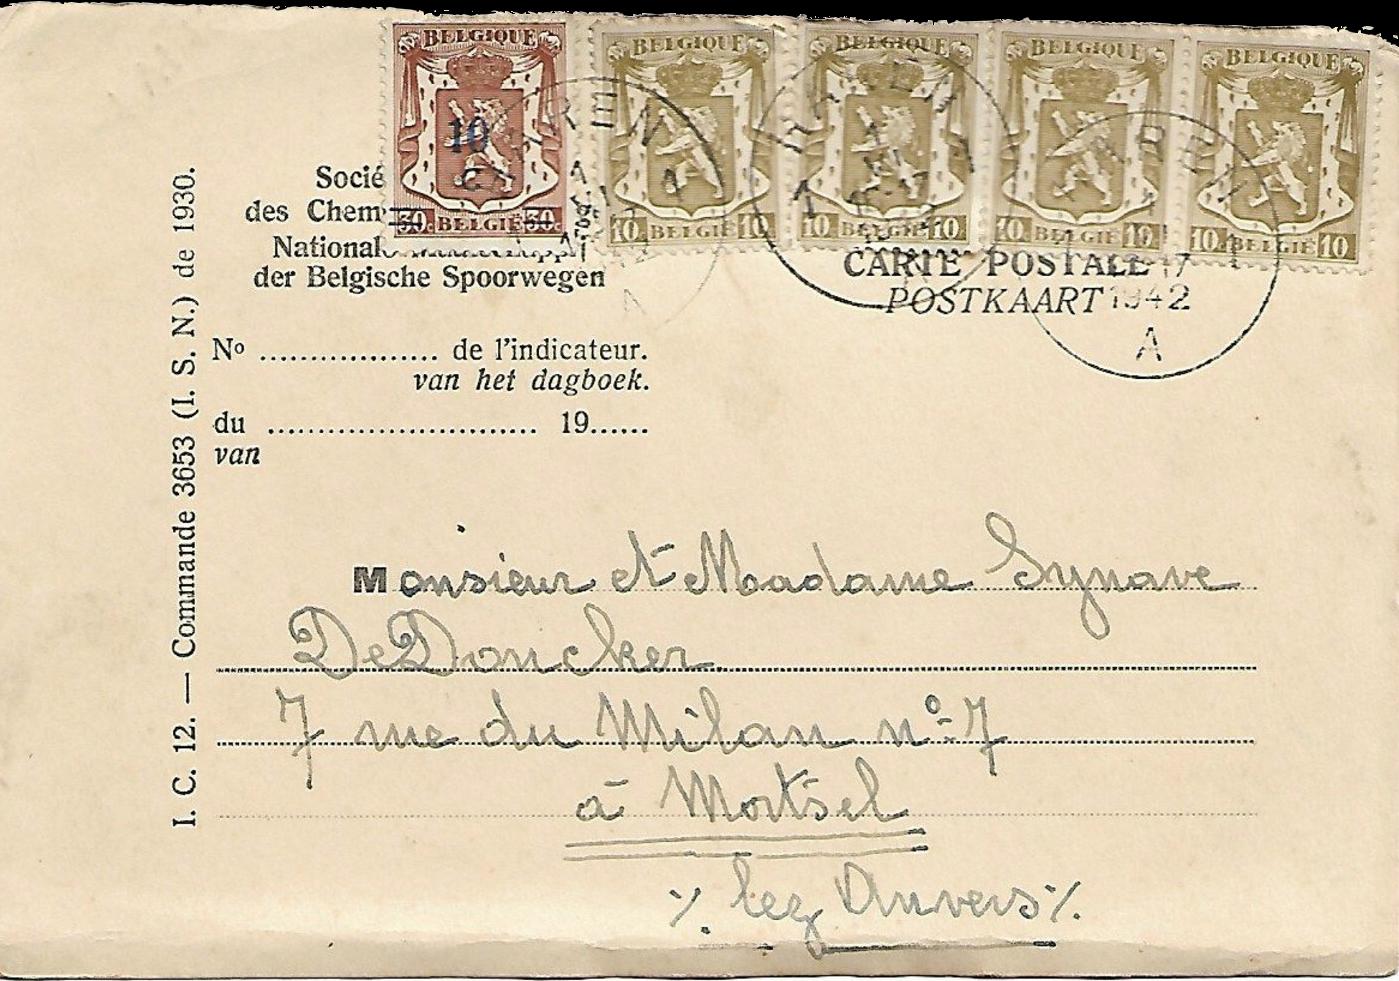 BELGIQUE BELGIQUE BELGIQUE BELGIQUE BELGIQUE
10
30. BELGIË 30. 10 BELGIË 10 10. BELGIË 10. 10. BELGIË 10 10. BELGIË 10
Socié
des Chem
National
der Belgische Spoorwegen
CARTE POSTALE
POSTKAART
1942
A
No .................. de l'indicateur.
van het dagboek.
du .......................... 19......
van
I. C. 12. — Commande 3653 (I. S. N.) de 1930.
Monsieur et Madame Synave
DeDoncker
7 rue du Milan n°-7
à Mortsel
./. lez Anvers ./.